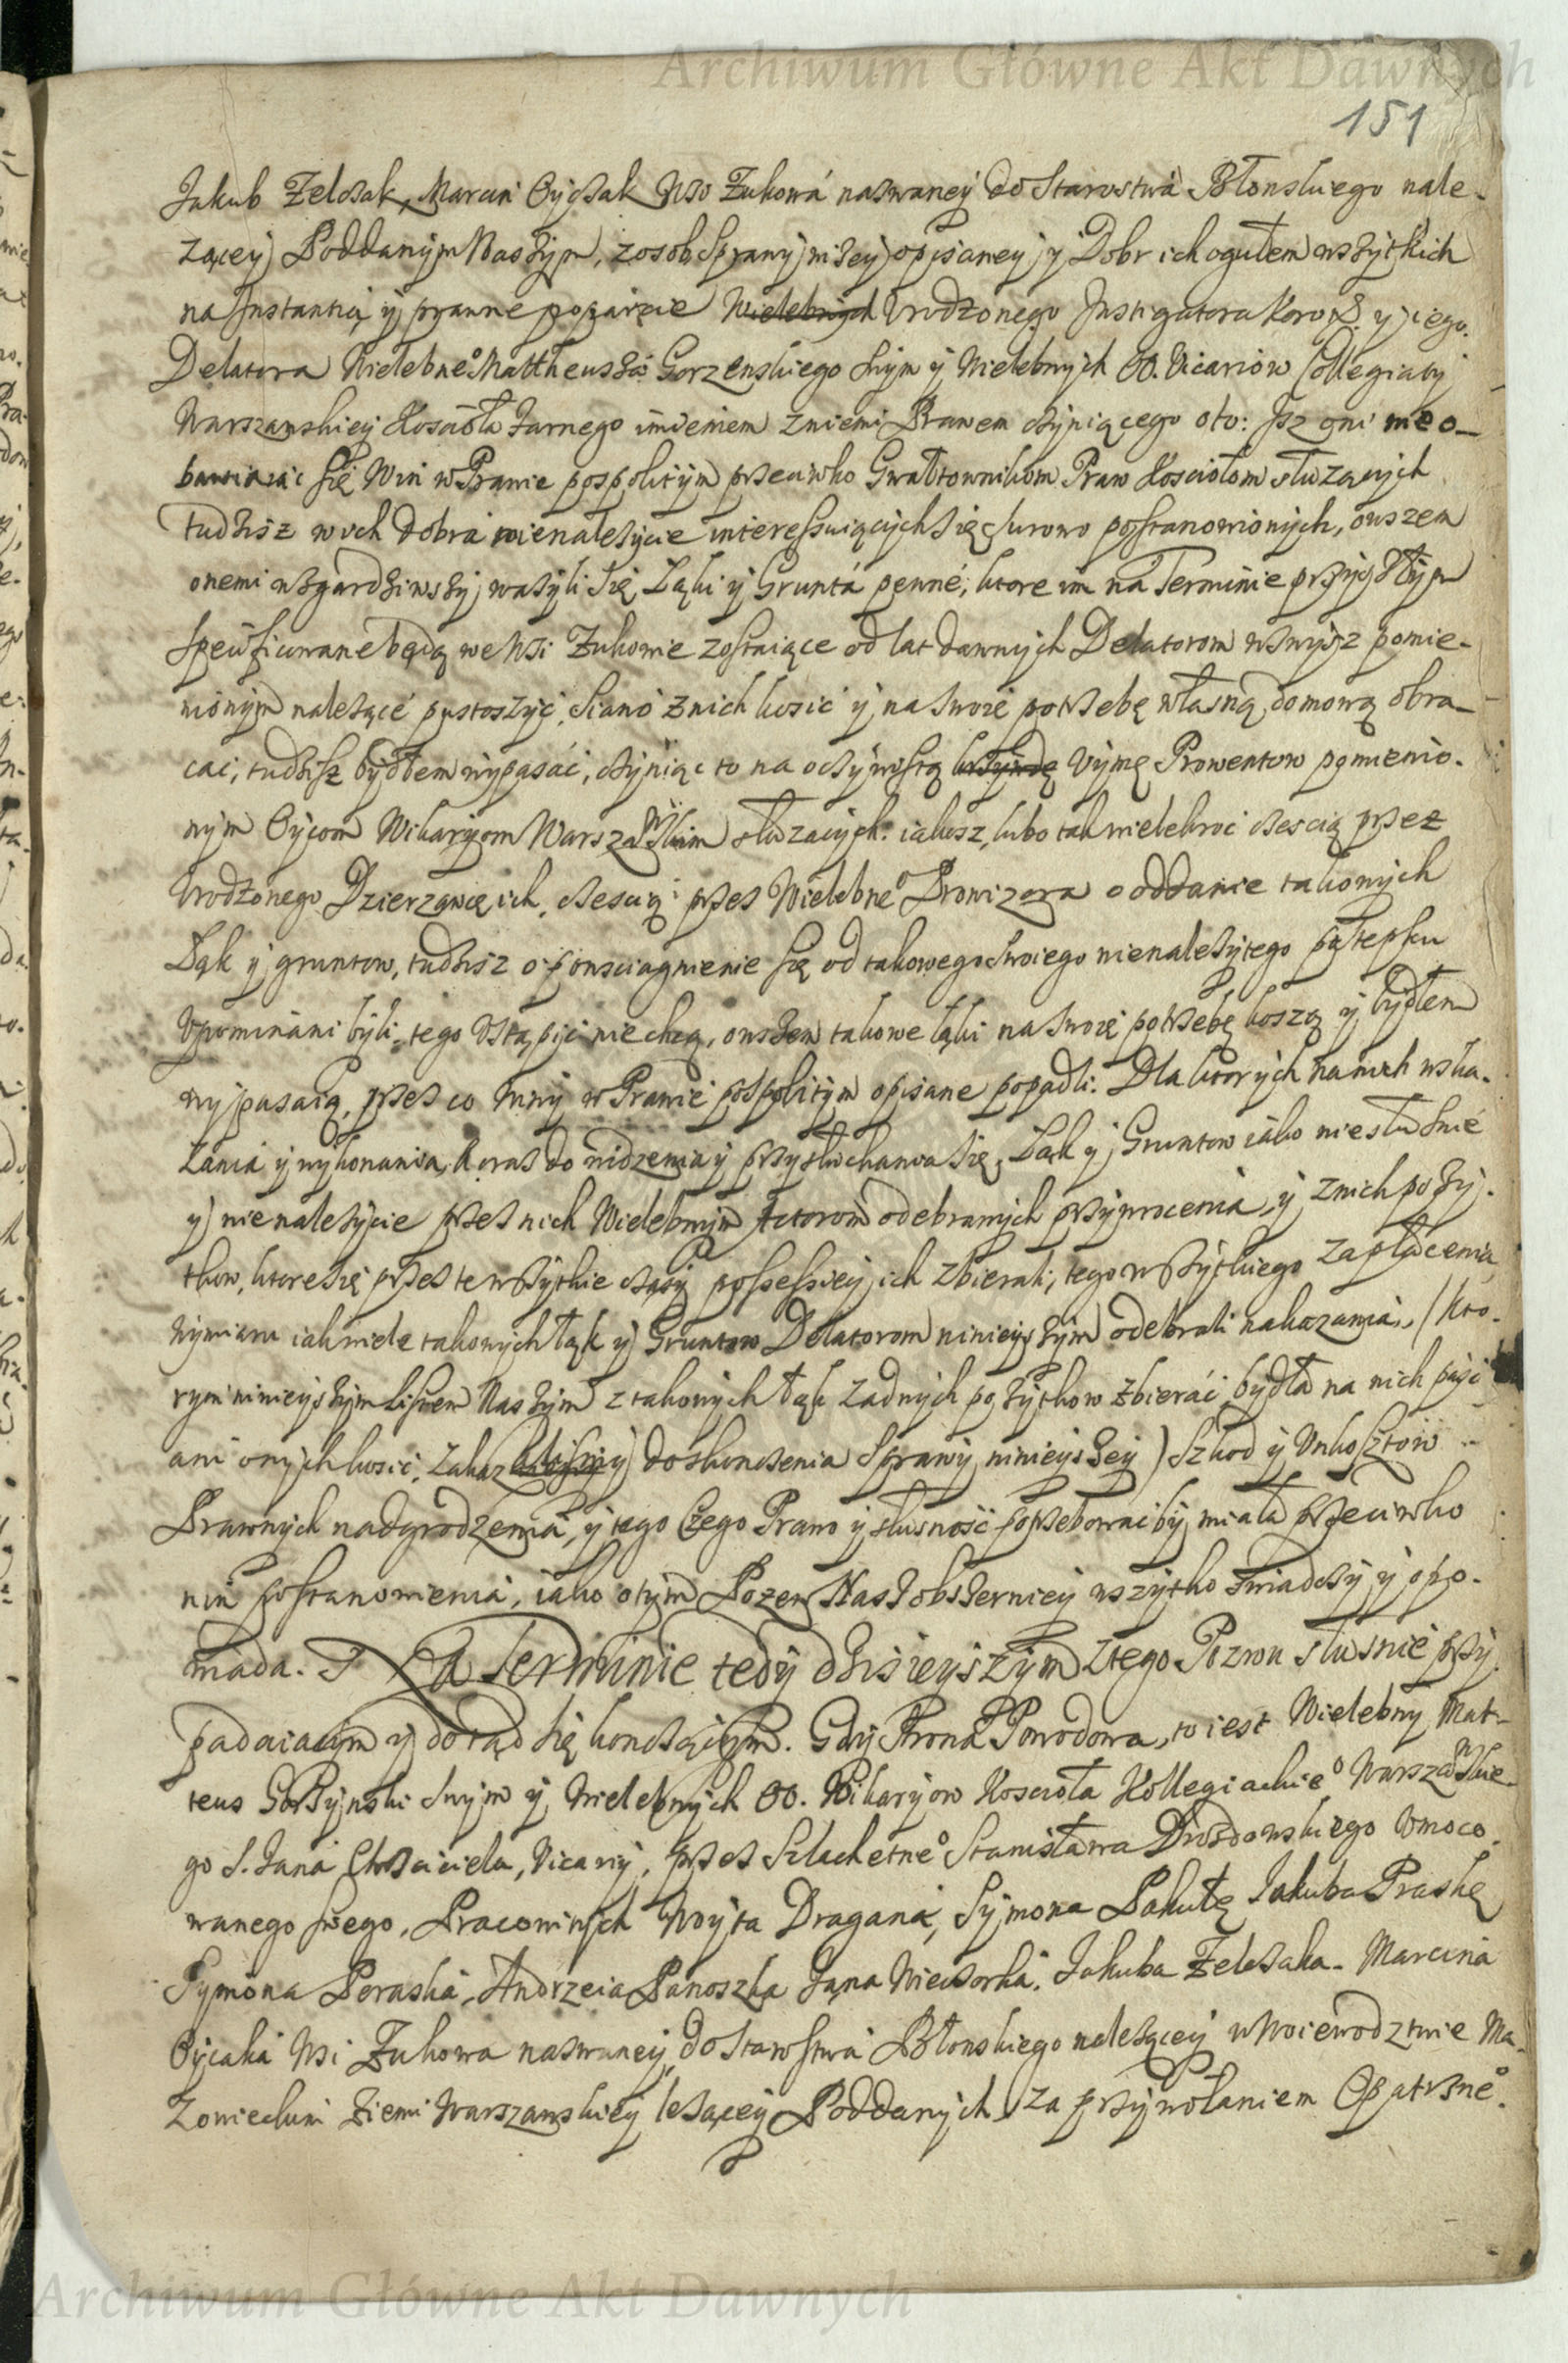 Archiwum Główne Akt Dawnych
151
Jakub Zelczak, Marcin Oyczak Wsi Zukowá nazwaney do Starostwá Błonskiego nale-
zącey Poddanym Naszym, z osob Sprawy niżey opisaney y Dobr ich ogułem wszytkich
na Instantią y prawne poparcie Wielebnych Urodzonego Instigatora Koron. y iego
Delatora Wielebne° Mattheusza Gorzenskiego swym y Wielebnych OO. Vicariow Collegiaty
Warszawskiey Koscioła Farnego imieniem z niemi Prawem czyniącego oto: Isz oni nie o-
bawiaiąc się Win w Prawie pospolitym przeciwko Gwałtownikom Praw Kosciołom służących
tudzisz w ich dobra nienależycie interessuiących się surowo postanowionych, owszem
onemi wzgardziwszy, ważyli się Łąki y Gruntá pewné, ktore im na Terminie przyszłym
specificowane będą we Wsi Zukowie zostaiące od lat dawnych Delatorom wzwysz pomie-
nionym należącé pustoszyć, Siano z nich kosić y na swoię potrzebę własną domową obra-
cać, tudzisz bydłem wypasáć, czyniąc to na oczywistą krzywdę Uymę Prowentow pomienio-
nym Oycom Wikaryom Warszawskim służących. iakosz, lubo tak wielekroć częscią przez
Urodzonego Dzierzawcę ich, częscią przez Wielebne° Prowizora o oddanie takowych
Łąk y gruntow, tudzisz o powsciągnienie się od takowego swoiego nienależytego postępku
Upominani byli, tego Ustąpić nie chcą, owszem takowe łąki na swoię potrzebę koszą y bydłem
wypasaią, przez co Winy w Prawie pospolitym opisane popadli. Dla ktorych na nich wska-
zania y wykonania, A oraz do widzenia y przysłuchania się, Łąk y Gruntow iako niesłusznie
y nienależycie przez nich Wielebnym Actorom odebranych przywrocenia, y z nich pozy-
tkow, ktore się przez te wszytkie czasy possessiey ich zbierali, tego wszytkiego zapłacenia
Wymiaru iak wiele takowych łąk y Gruntow Delatorom ninieyszym odebrali nakazania, (kto-
rym ninieyszym Listem Naszym z takowych łąk zadnych pożytkow zbieráć, bydła na nich paść
ani onych kosić, zakaz do skonczenia Sprawy ninieyszey) Szkod y Unkosztow
Prawnych nadgrodzenia, y tego Czego Prawo y słusność potrzebować by miała przeciwko
nim postanowienia, iako o tym Pozew Nasz obszerniey wszytko swiadczy y opo-
wiada.
Na Terminie tedy dzisieyszym z tego Pozwu słusznie przy
padaiącym y dotąd się konczącym. Gdy Strona Powodowa, to iest Wielebny Mat-
teus Gorzynski swym y Wielebnych OO. Wikaryow Kosciola Kollegiackie° Warszawskie-
go S. Jana Chrzciciela, Vicary, przez Szlachetne° Stanisława Drozdowskiego Umoco-
wanego swego, Pracowitych Woyta Dragana, Symona Pakułę Jakuba Praskę
Symona Peraska, Andrzeia Panoszka Jana Wieczorka, Jakuba Zeleszaka, Marcina
Oycaká Wsi Zukowa nazwaney, do Starostwá Błonskiego należącey w Woiewodztwie Ma-
zowieckim Ziemi Warszawskiey leżącey Poddanych, za przywołaniem Opatrzne°
Archiwum Główne Akt Dawnych